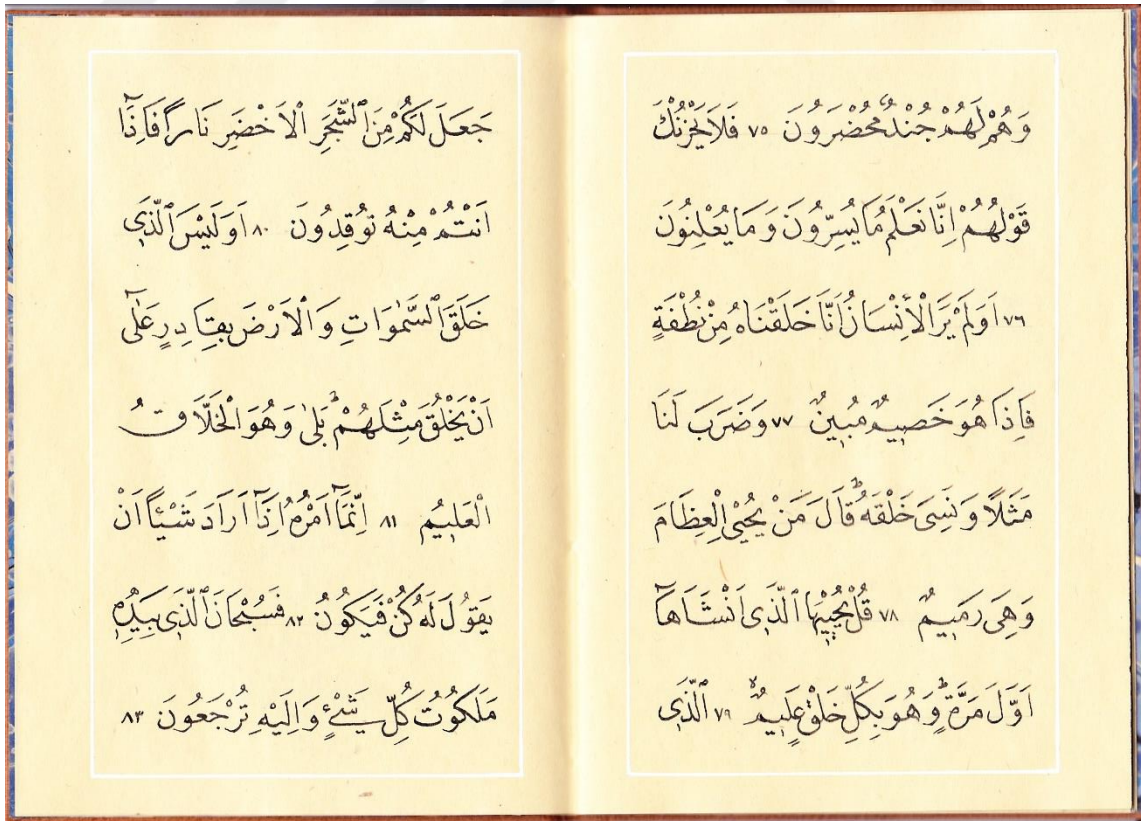 وَهُمْ لَهُمْ جُنْدٌ مُحْضَرُونَ ٧٥ فَلَا يَحْزُنْكَ
قَوْلُهُمْ اِنَّا نَعْلَمُ مَا يُسِرُّونَ وَمَا يُعْلِنُونَ
٧٦ اَوَلَمْ يَرَ الْاِنْسَانُ اَنَّا خَلَقْنَاهُ مِنْ نُطْفَةٍ
فَاِذَا هُوَ خَصِيمٌ مُبِينٌ ٧٧ وَضَرَبَ لَنَا
مَثَلًا وَنَسِىَ خَلْقَهُ قَالَ مَنْ يُحْيِى الْعِظَامَ
وَهِىَ رَمِيمٌ ٧٨ قُلْ يُحْيِيهَا الَّذِى اَنْشَاَهَآ
اَوَّلَ مَرَّةٍ وَهُوَ بِكُلِّ خَلْقٍ عَلِيمٌ ٧٩ اَلَّذِى
جَعَلَ لَكُمْ مِنَ الشَّجَرِ الْاَخْضَرِ نَارًا فَاِذَآ
اَنْتُمْ مِنْهُ تُوقِدُونَ ٨٠ اَوَلَيْسَ الَّذِى
خَلَقَ السَّمٰوَاتِ وَالْاَرْضَ بِقَادِرٍ عَلٰٓى
اَنْ يَخْلُقَ مِثْلَهُمْ بَلٰى وَهُوَ الْخَلَّاقُ
الْعَلِيمُ ٨١ اِنَّمَآ اَمْرُهُ اِذَآ اَرَادَ شَيْئًا اَنْ
يَقُولَ لَهُ كُنْ فَيَكُونُ ٨٢ فَسُبْحَانَ الَّذِى بِيَدِهِ
مَلَكُوتُ كُلِّ شَىْءٍ وَاِلَيْهِ تُرْجَعُونَ ٨٣